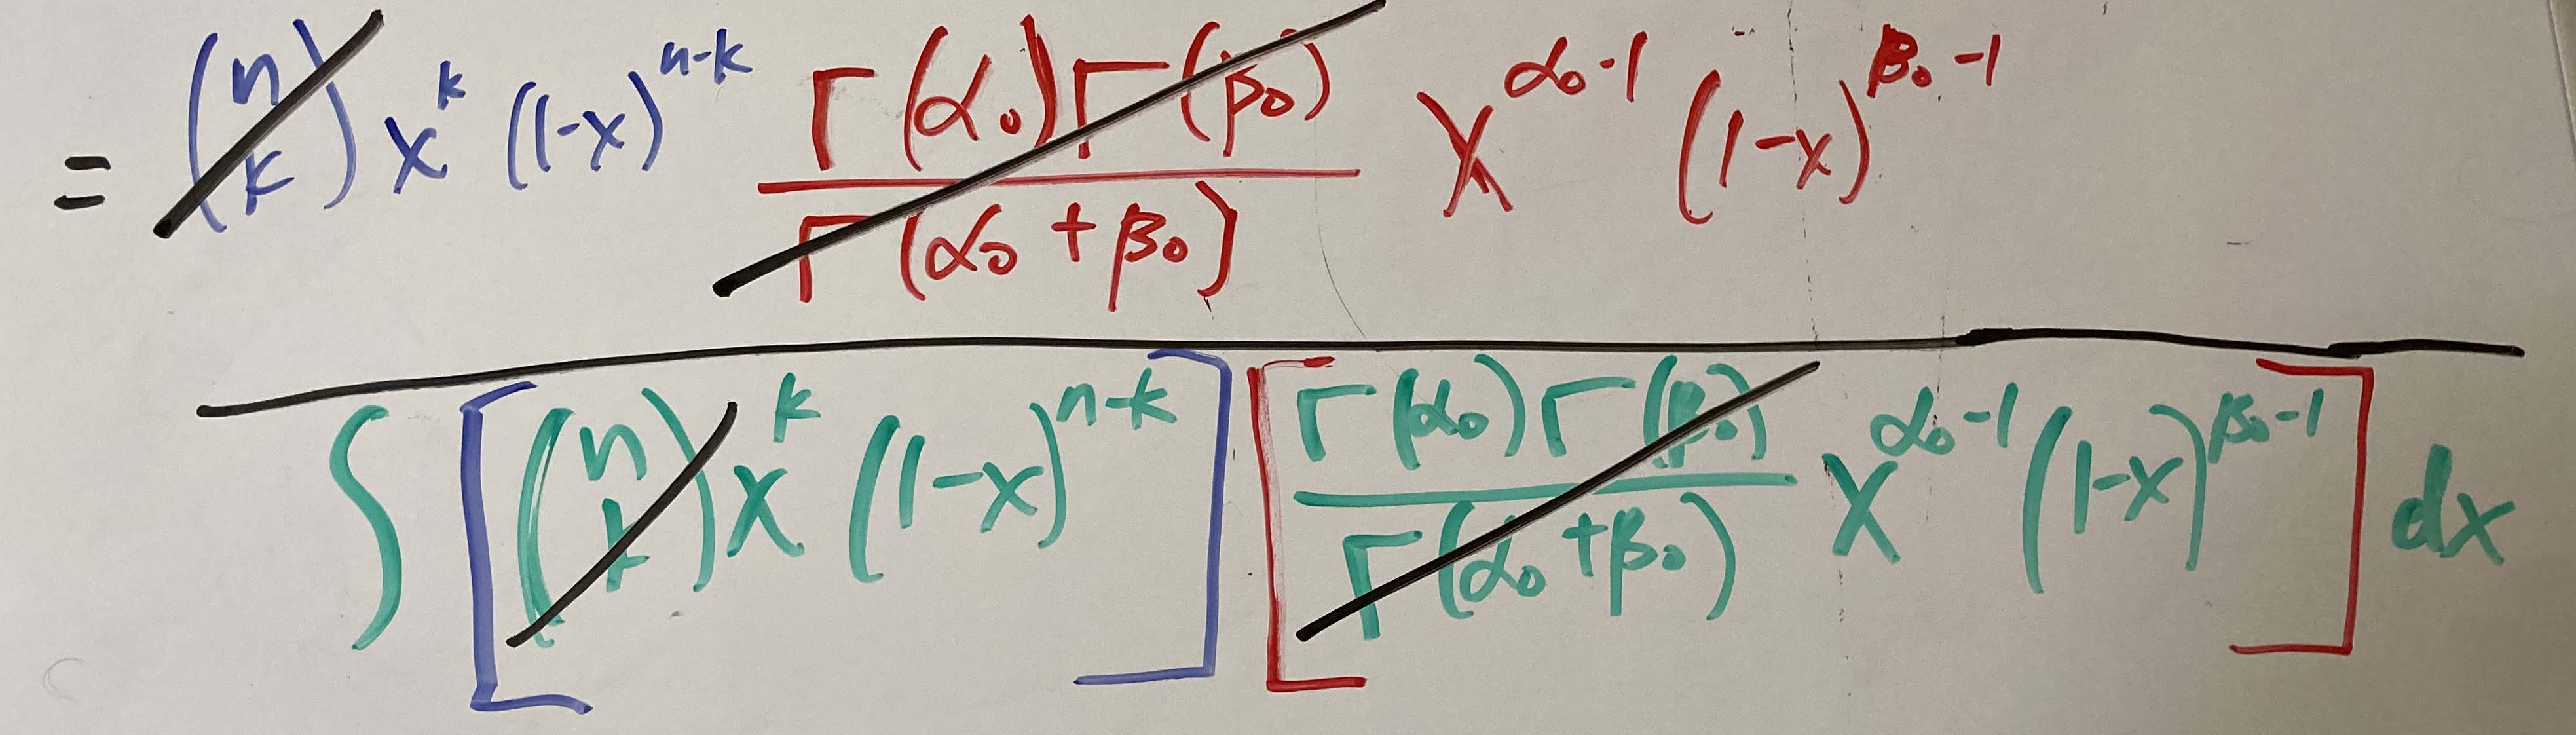 = (n k) x^k (1-x)^{n-k} Γ(α₀)Γ(β₀) / Γ(α₀+β₀) x^{α₀-1} (1-x)^{β₀-1}
∫ [(n k) x^k (1-x)^{n-k}] [Γ(α₀)Γ(β₀) / Γ(α₀+β₀) x^{α₀-1} (1-x)^{β₀-1}] dx